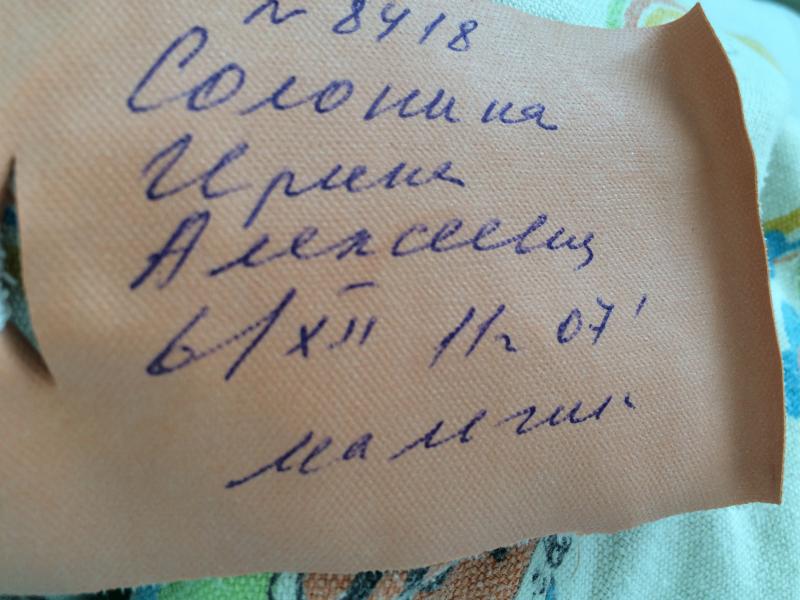 ~ 8418
Солонина
Ирина
Алексеевна
6/XII 11ч 07'
мальчик